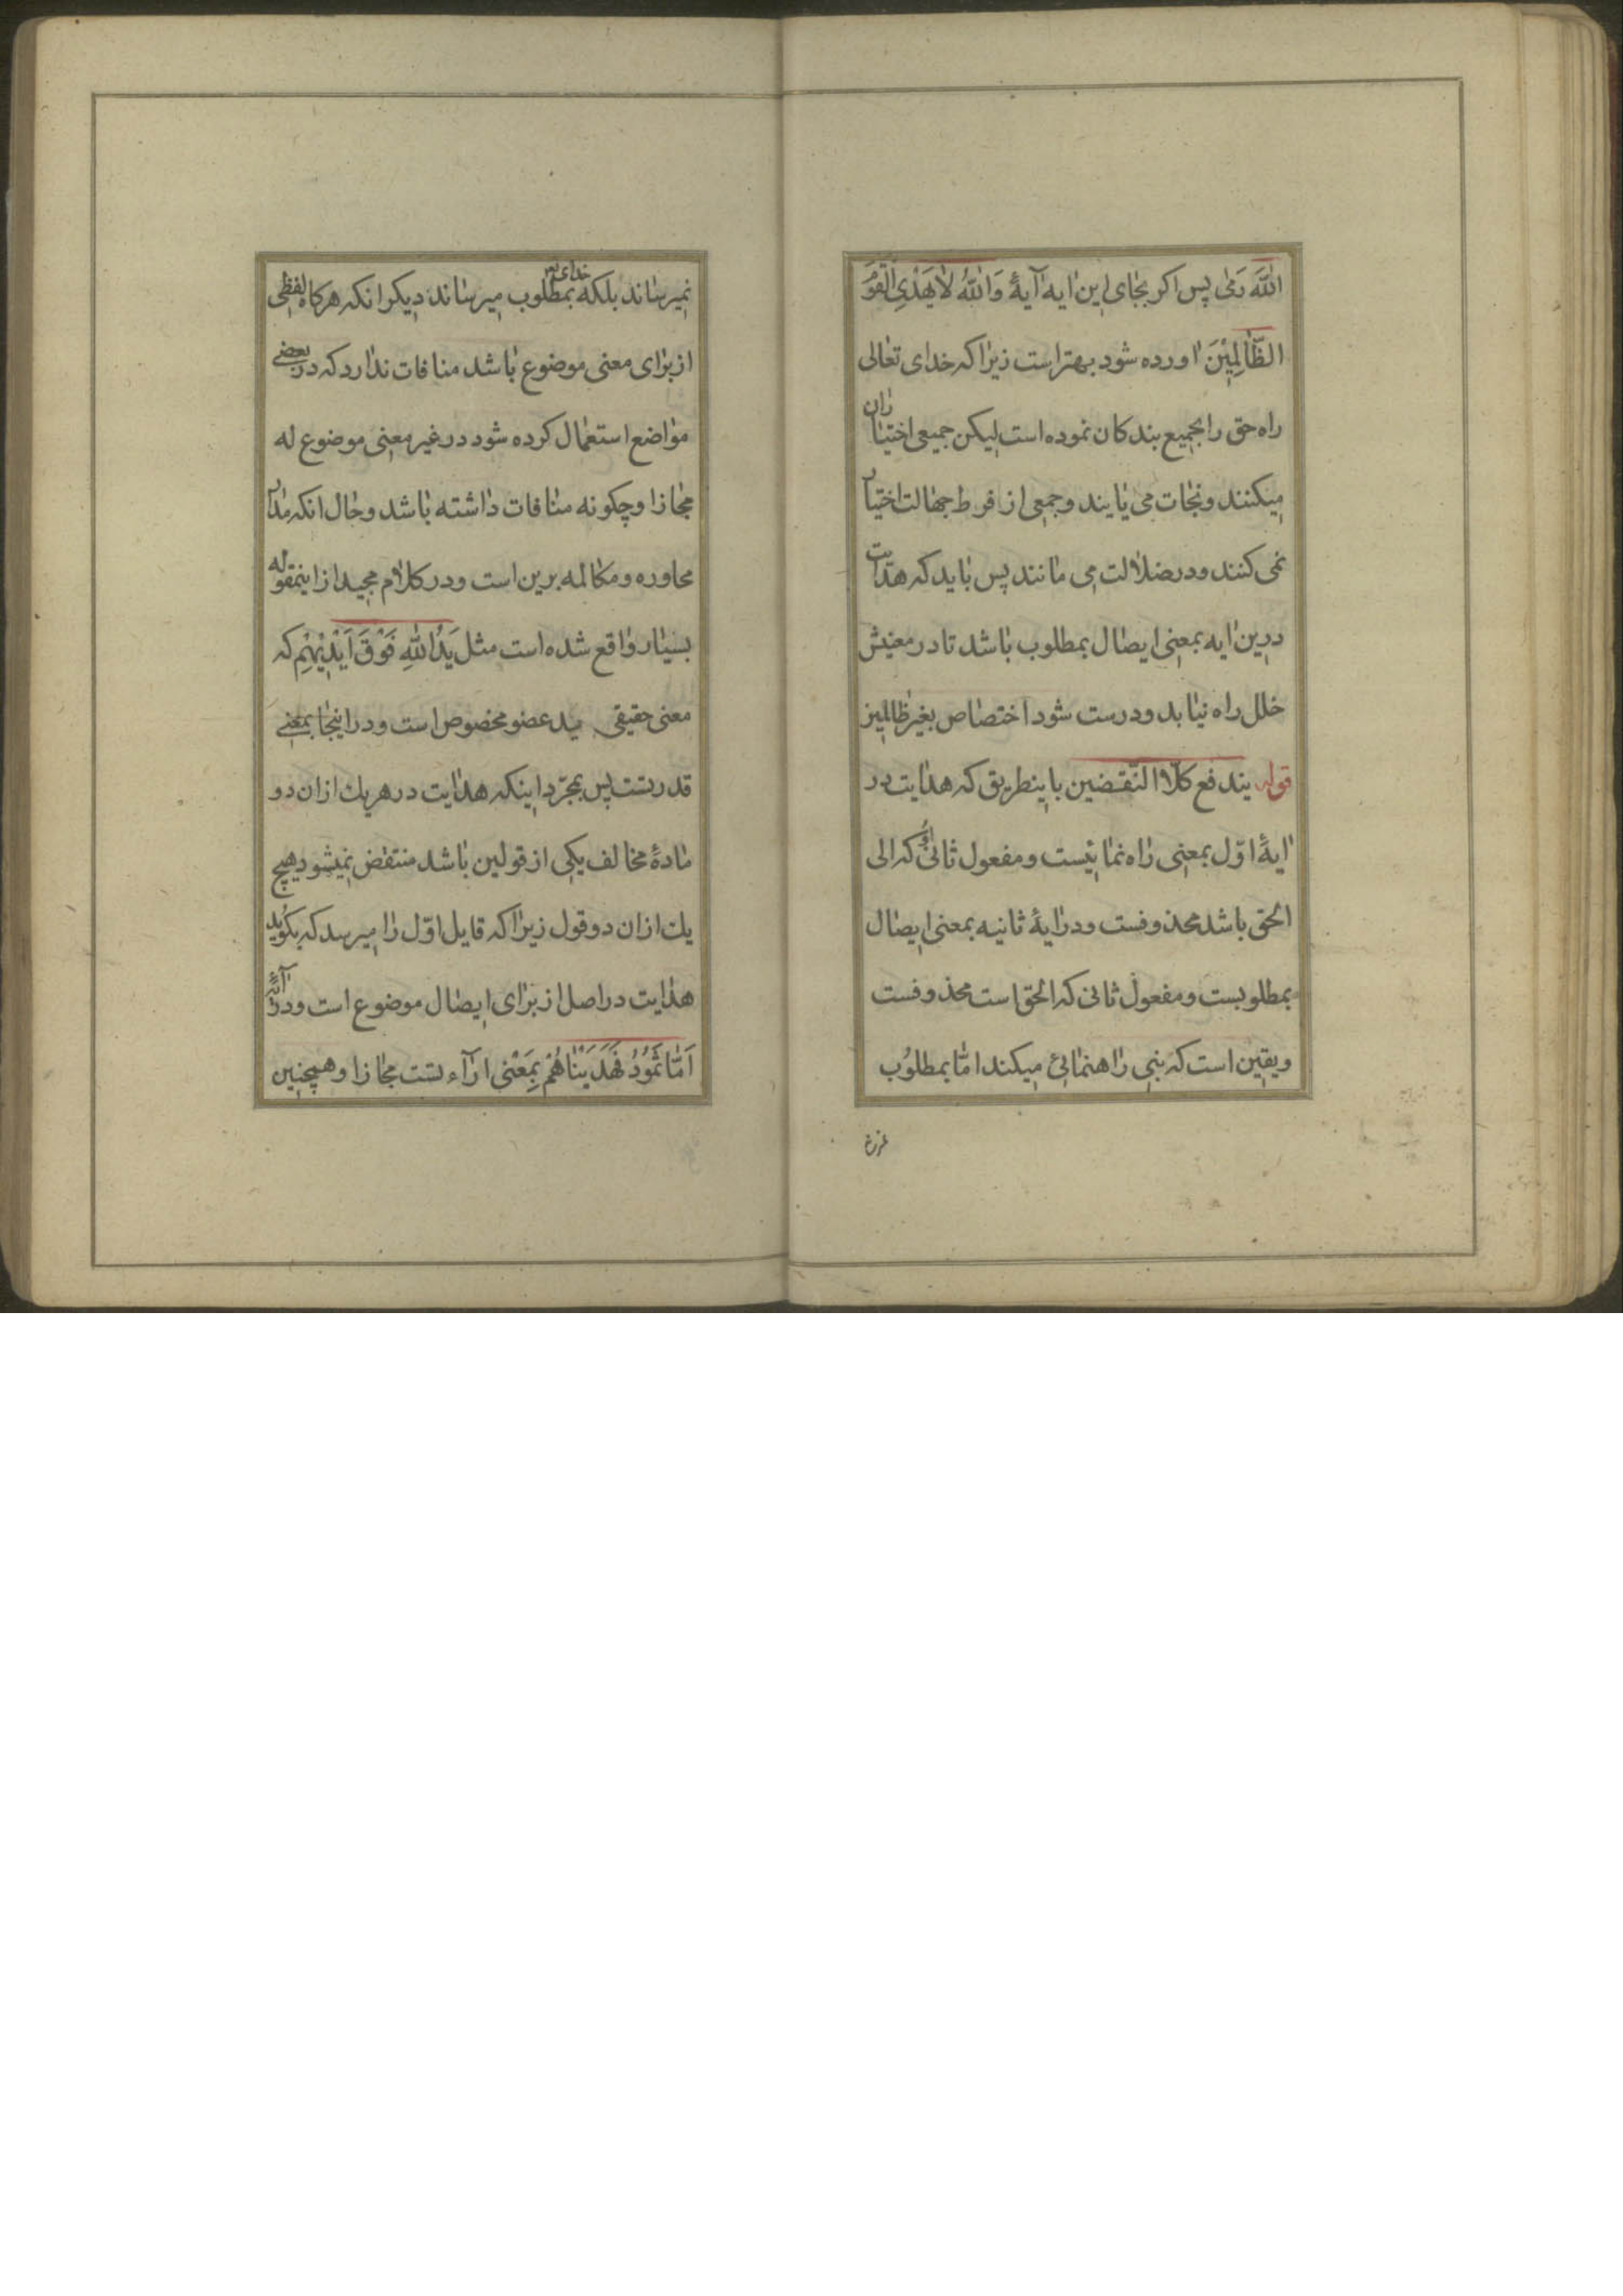 الله رمی پس اکر بجای این ایه آیهٔ وَاللهُ لَا یَهْدِی الْقَوْمَ
الظَّالِمِیْنَ اورده شود بهتر است زیرا که خدای تعالی
راه حق را بجمیع بندکان نموده است لیکن جمیعی اختیار ان
میکنند و نجات می یابند و جمعی از فرط جهالت اختیار
نمی کنند و در ضلالت می مانند پس باید که هدایت
درین ایه بمعنی ایصال بمطلوب باشد تا در معنیش
خلل راه نیابد و درست شود اختصاص بغیر ظالمین
قوله یندفع کلا النّقضین باینطریق که هدایت در
ایهٔ اوّل بمعنی راه نمائیست و مفعول ثانی او که الی
الحق باشد محذوفست و در ایهٔ ثانیه بمعنی ایصال
بمطلوبست و مفعول ثانی که الحق است محذوفست
و یقین است که نبی راهنمائی میکند امّا بمطلوُب
نمیرساند بلکه خدای تع بمطلوب میرساند دیکر انکه هرکاه لفظی
از برای معنی موضوع باشد منافات ندارد که در بعضے
مواضع استعمال کرده شود در غیر معنی موضوع له
مجازا و چکونه منافات داشته باشد و حال انکه مدار
محاوره و مکالمه برین است و در کلام مجید از اینمقوله
بسیار واقع شده است مثل یَدُ اللهِ فَوْقَ اَیْدِیْهِمْ که
معنی حقیقی ید عضو مخصوص است و در اینجا بمعنے
قدرتست پس بمجرّد اینکه هدایت در هریك از ان دو
مادهٔ مخالف یکی از قولین باشد منتقض نمیشود هیچ
یك از ان دو قول زیرا که قایل اوّل را میرسد که بکوید
هدایت در اصل از برای ایصال موضوع است و در آیهٔ
اَمَّا ثَمُوْدُ فَهَدَیْنَاهُمْ بِمَعْنی اراءتست مجازا و همچنین